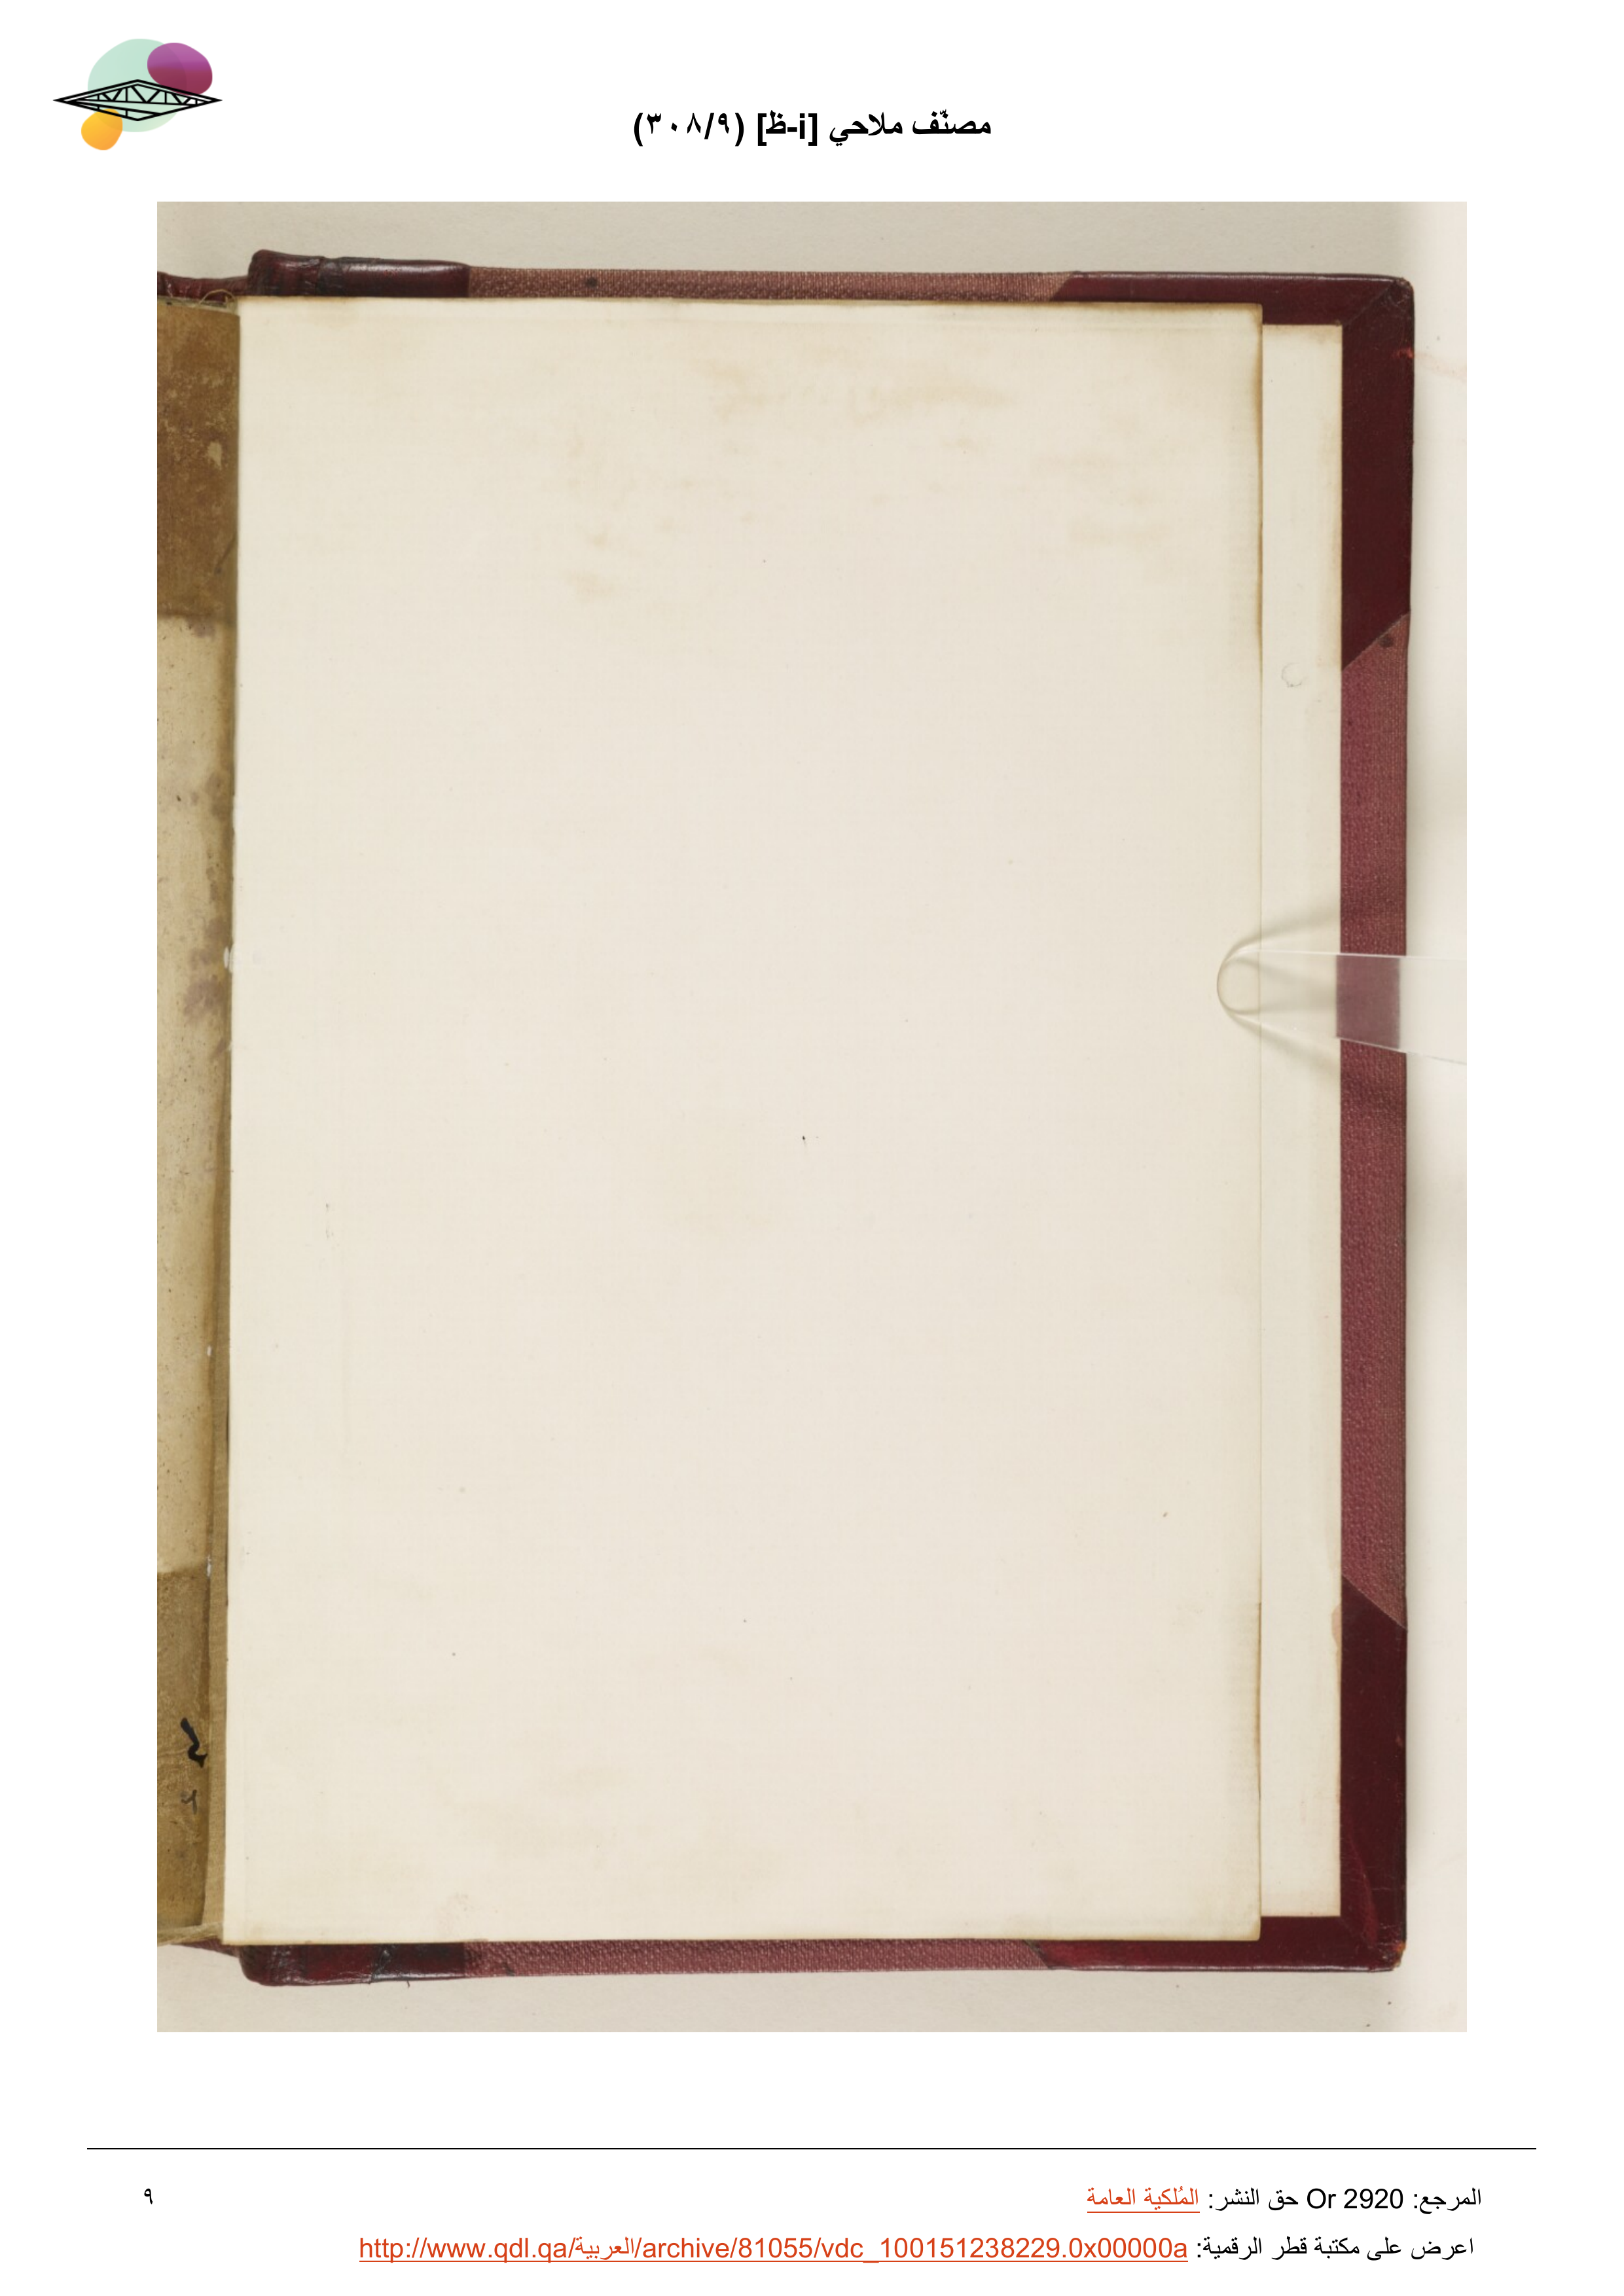 مصنّف ملاحي [i-ظ] (٣٠٨/٩)
المرجع: Or 2920 حق النشر: المُلكية العامة
٩
اعرض على مكتبة قطر الرقمية: http://www.qdl.qa/العربية/archive/81055/vdc_100151238229.0x00000a